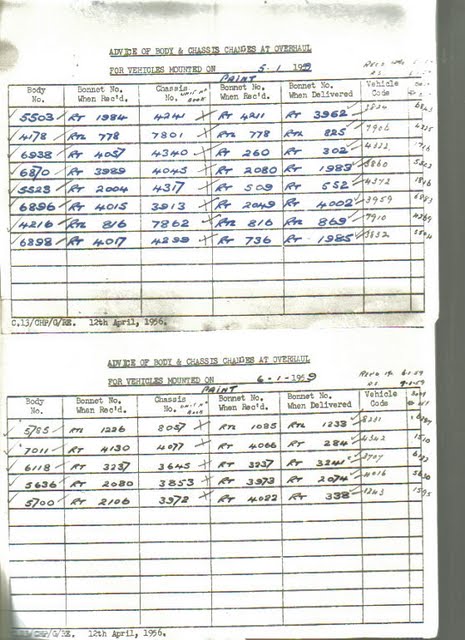 ADVICE OF BODY & CHASSIS CHANGES AT OVERHAUL
FOR VEHICLES MOUNTED ON 5-1 1959
PAINT
Body No. Bonnet No. When Rec'd. Chassis No. Bonnet No. When Rec'd. Bonnet No. When Delivered Vehicle Code
5503 RT 1984 4241 RT 4211 RT 3962 3824
4178 RTL 778 7801 RTL 778 RTL 825 7906
6938 RT 4057 4340 RT 260 RT 302 4332
6870 RT 3989 4045 RT 2080 RT 1989 3860
5523 RT 2004 4317 RT 509 RT 552 4372
6896 RT 4015 3913 RT 2049 RT 4002 3959
4216 RTL 816 7862 RTL 816 RTL 869 7910
6898 RT 4017 4299 RT 736 RT 1985 3832
C.13/CHP/G/RE. 12th April, 1956.
ADVICE OF BODY & CHASSIS CHANGES AT OVERHAUL
FOR VEHICLES MOUNTED ON 6-1-1959
PAINT
Body No. Bonnet No. When Rec'd. Chassis No. Bonnet No. When Rec'd. Bonnet No. When Delivered Vehicle Code
5785 RTL 1226 8057 RTL 1085 RTL 1238 8231
7011 RT 4130 4077 RT 4066 RT 284 4342
6118 RT 3237 3645 RT 3237 RT 3241 3707
5636 RT 2080 3853 RT 3973 RT 2074 4016
5700 RT 2106 3972 RT 4022 RT 338 4243
12th April, 1956.